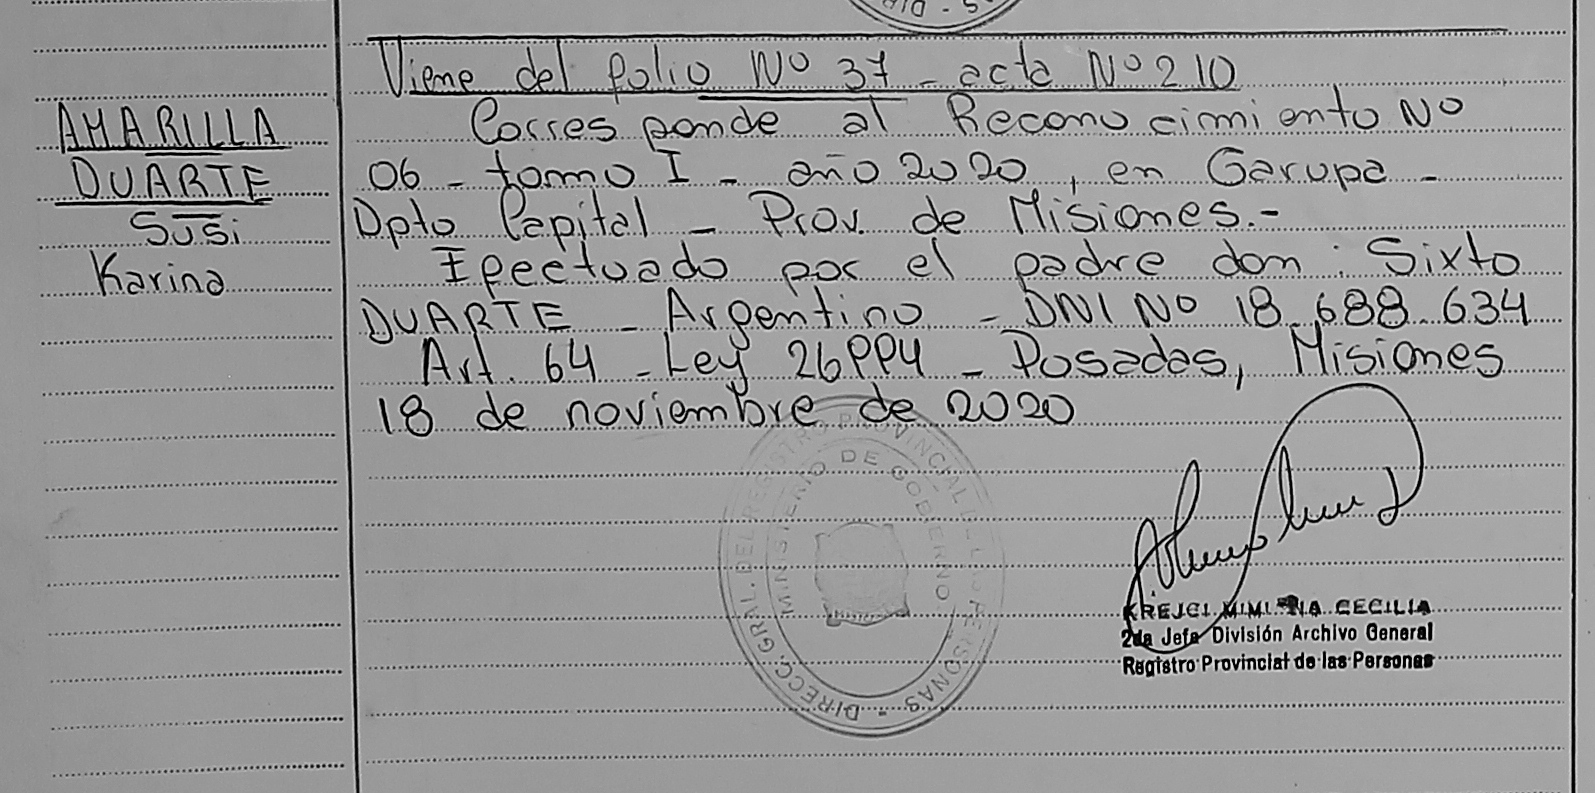 Viene del folio Nº 37 - acta Nº 210
AMARILLA
DUARTE
Susi
Karina
Corresponde al Reconocimiento Nº
06 - tomo I - año 2020, en Garupa -
Dpto Capital - Prov. de Misiones.-
Efectuado por el padre don: Sixto
DUARTE - Argentino - DNI Nº 18.688.634
Art. 64 - Ley 26994 - Posadas, Misiones
18 de noviembre de 2020
DIRECC. GRAL. DEL REGISTRO PROVINCIAL DE LAS PERSONAS -
MINISTERIO DE GOBIERNO
KREJCI CECILIA
2da Jefa División Archivo General
Registro Provincial de las Personas